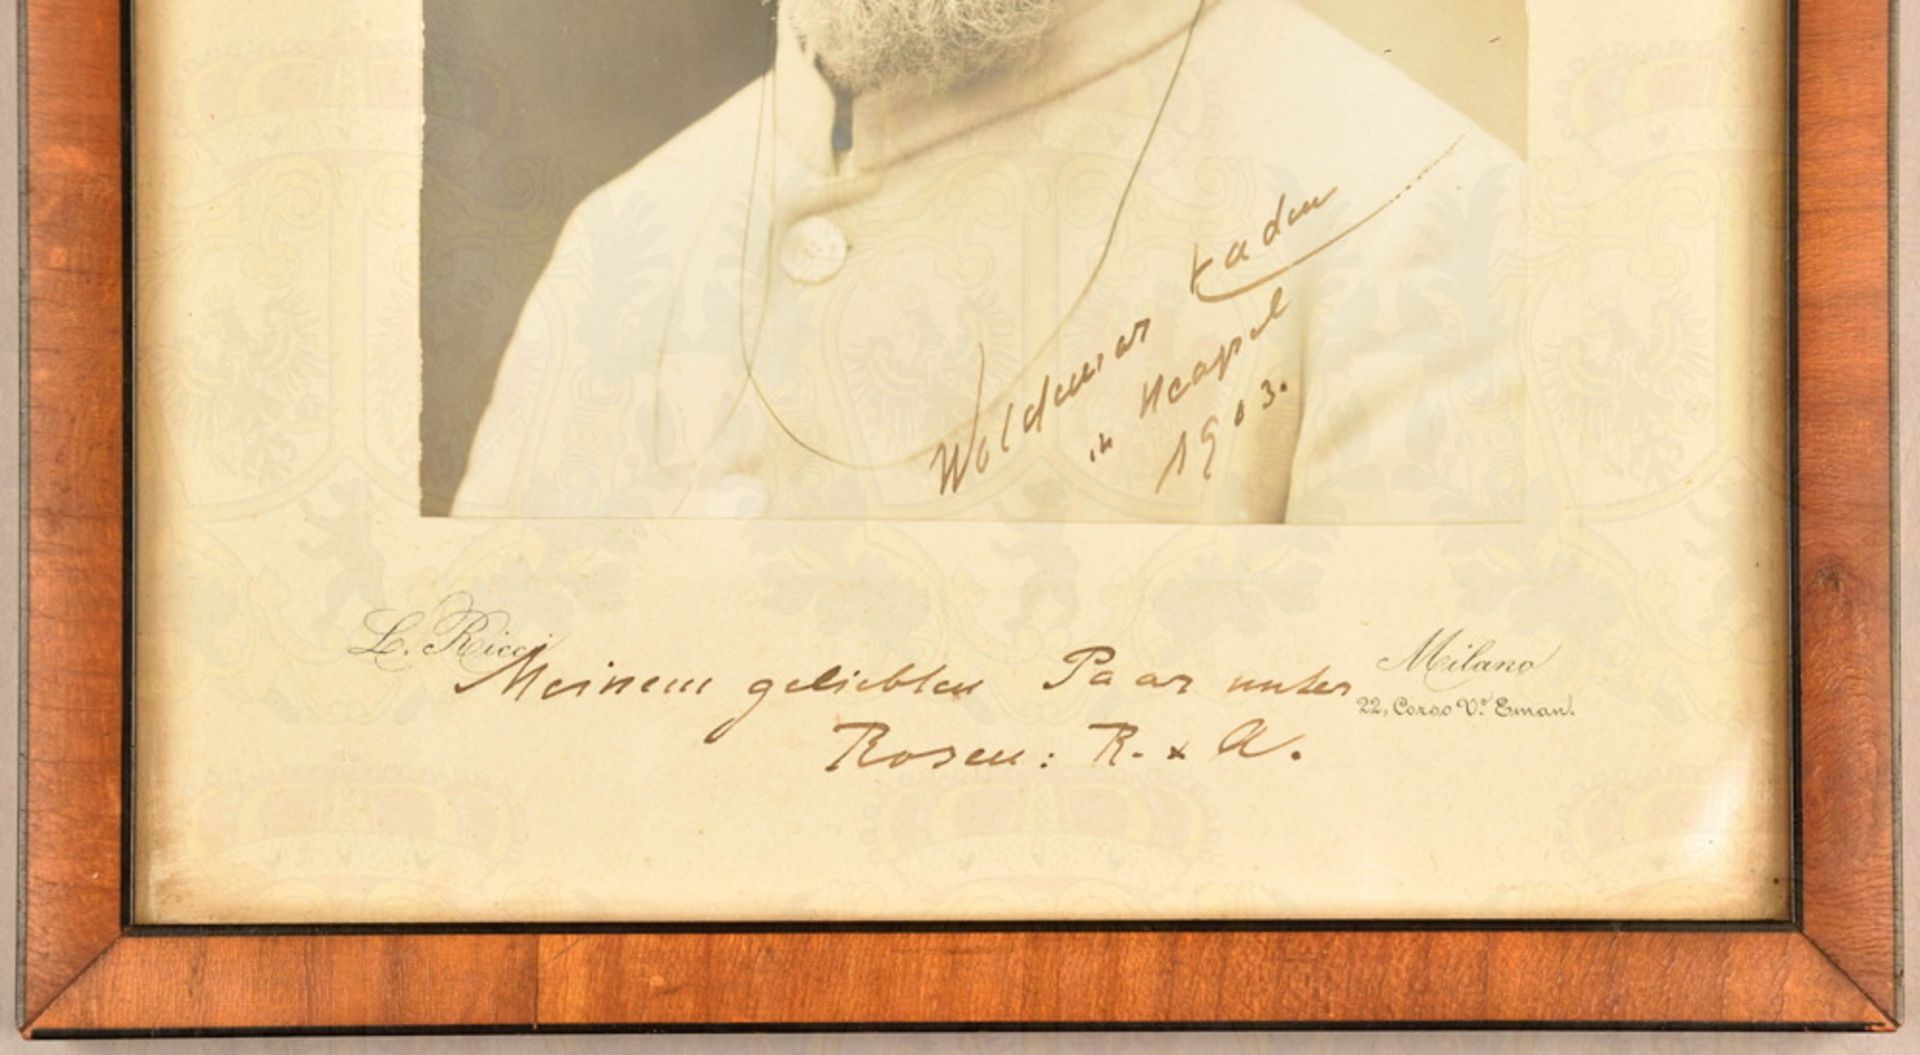 Woldemar Kaden
in Neapel
1903.
L. Ricci
Milano
22, Corso V.º Eman.
Meinem geliebten Paar unter
Rosen: R. & A.